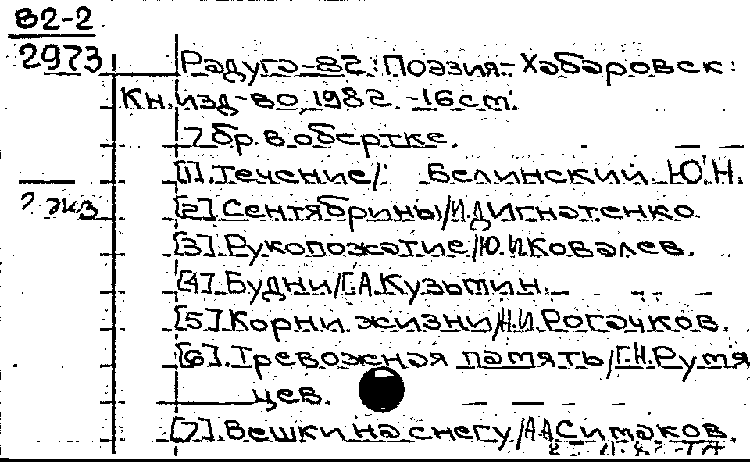 82-2
2973
Радуга-82: Поэзия.- Хабаровск:
Кн. изд-во, 1982. -16см.
7 бр. в обертке.
[1]. Течение/ Белинский Ю.Н.
2 экз
[2]. Сентябрины/И.Д.Игнатенко
[3]. Рукопожатие/Ю.И.Ковалев.
[4]. Будни/Г.А.Кузьмин.
[5]. Корни жизни/Н.И.Рогачков.
[6]. Тревожная память/Г.Н.Румя
цев.
[7]. Вешки на снегу/А.А.Симаков.